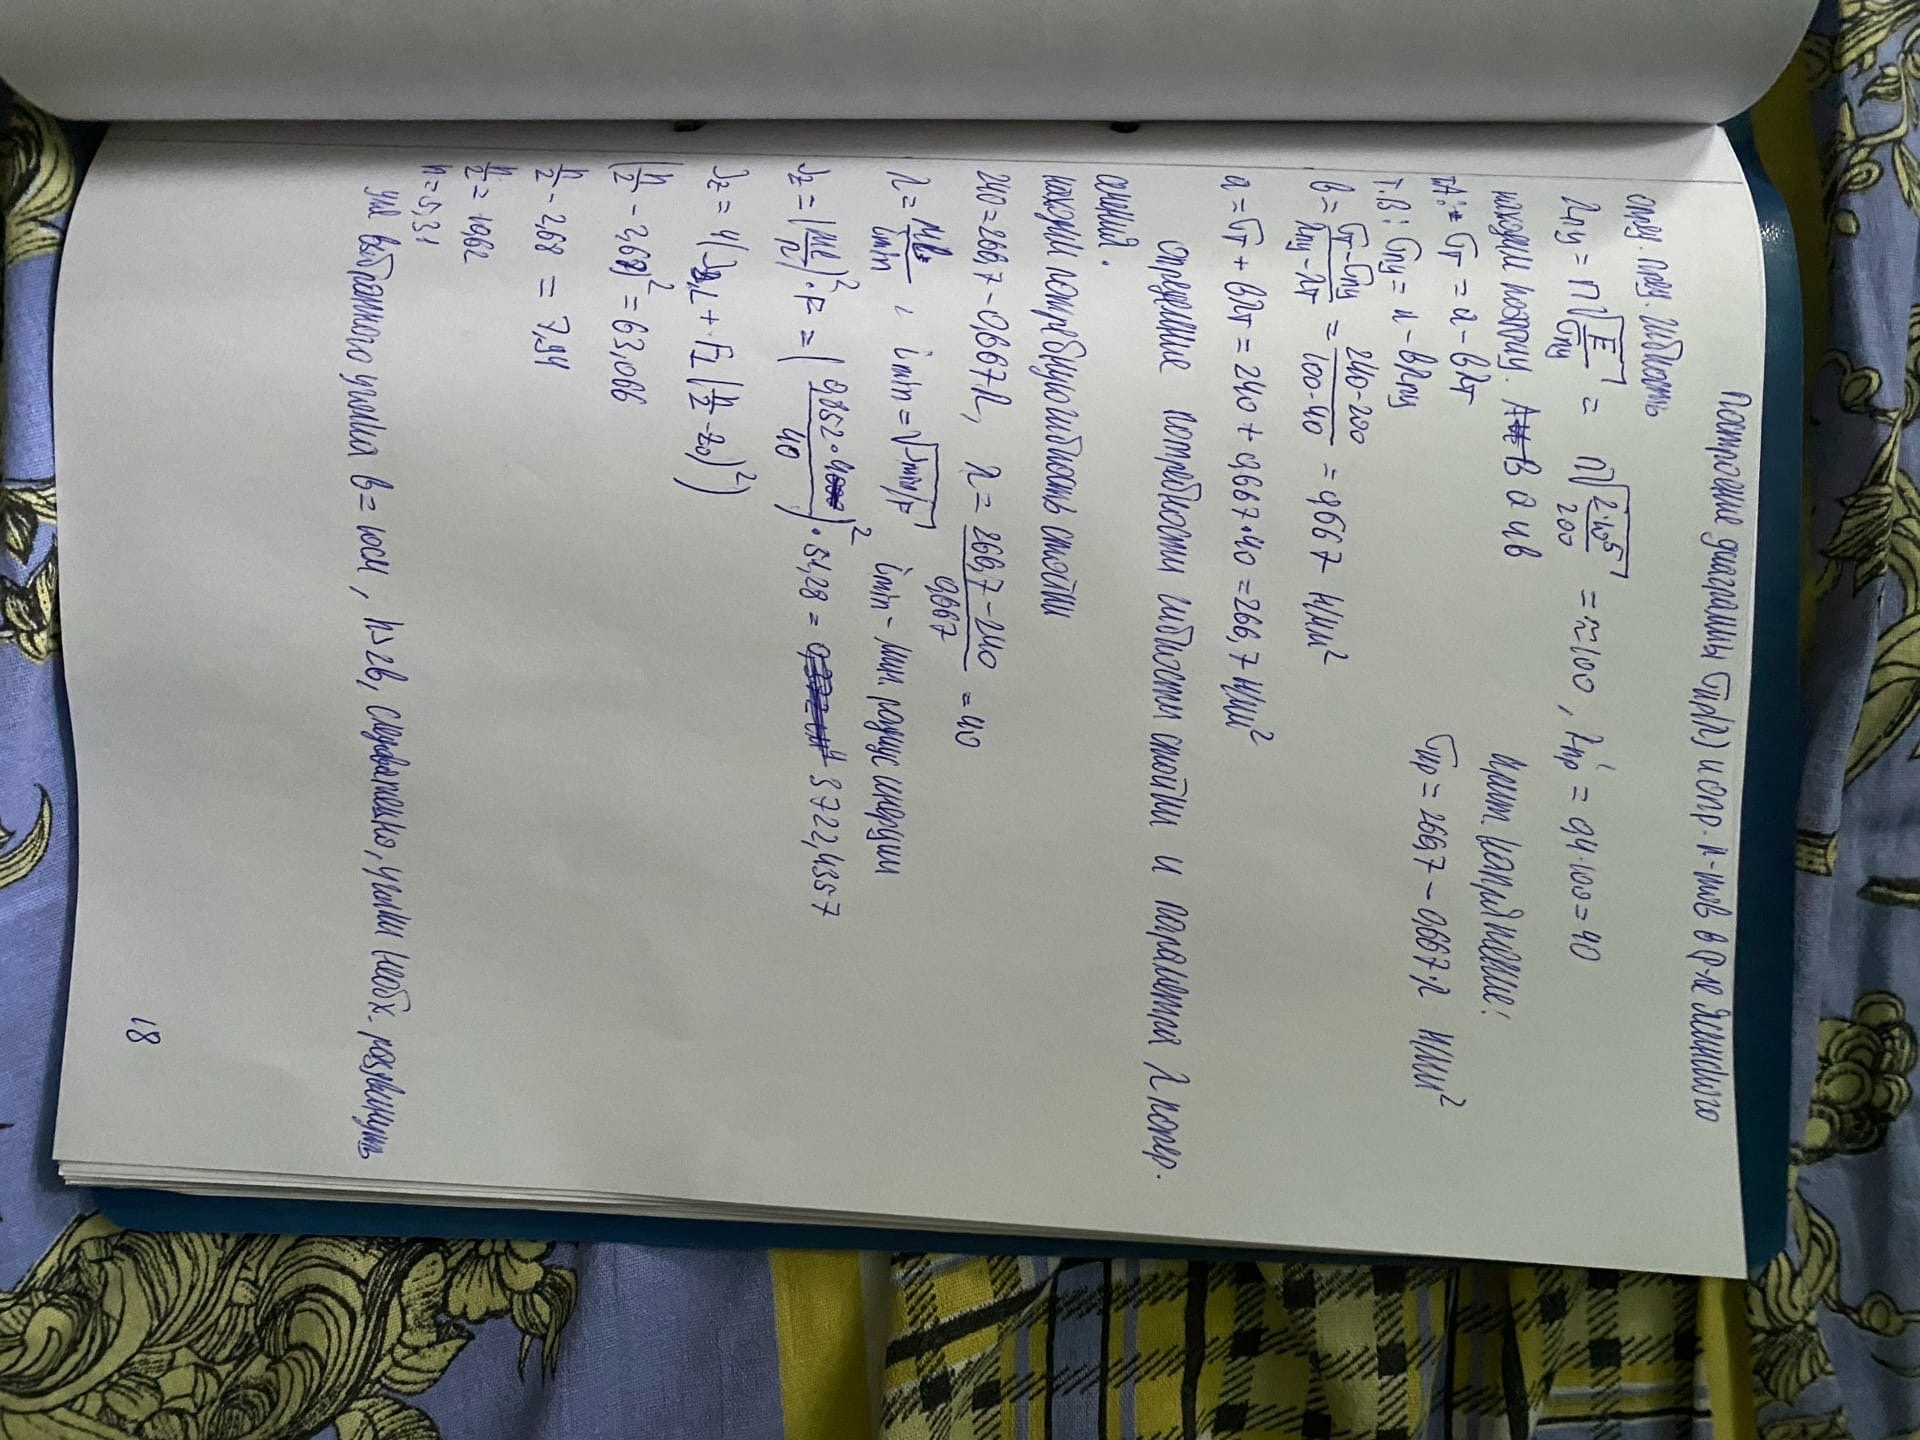 Построение диаграммы σкр(λ) и опр. к-тов в ф-ле Ясинского
опред. пред. гибкость
λпц = π√(E/σпц) = π√(2·10⁵/200) = ≈100, λ'пр = 0,4·100 = 40
находим коэффиц. a и в
крит. напряжение:
т.A: σт = a - вλт
σкр = 266,7 - 0,667·λ Н/мм²
т.B: σпц = a - вλпц
в = (σт - σпц)/(λпц - λт) = (240-200)/(100-40) = 0,667 Н/мм²
a = σт + вλт = 240 + 0,667·40 = 266,7 Н/мм²
определение потребности гибкости стойки и параметра λ попер.
сечения.
находим потребную гибкость стойки
240 = 266,7 - 0,667λ, λ = (266,7 - 240)/0,667 = 40
λ = μl/imin, imin = √(Jmin/F) imin - мин. радиус инерции
Jz = (μl/λ)²·F = (0,852·4/40)²·51,28 = 3722,4357
Jz = 4(J + F1(h/2 - z0)²)
(h/2 - 2,68)² = 63,066
h/2 - 2,68 = 7,94
h/2 = 10,62
h = 5,31
для выбранного уголка в = 10см, h>2в, следовательно, уголки необх. раздвинуть
18